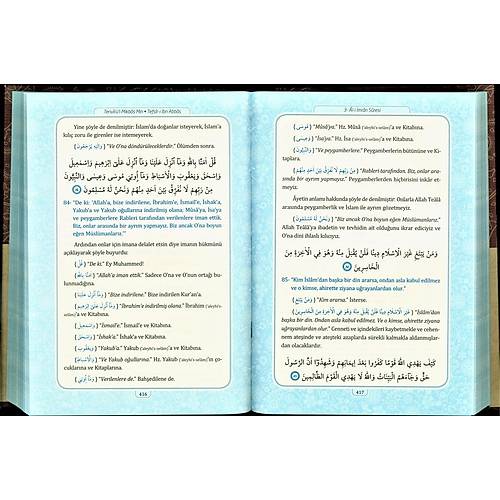 Tenvîru'l-Mikbâs Min • Tefsîr-i İbn Abbâs
Yine şöyle de denilmiştir: İslam'da doğanlar isteyerek, İslam'a
kılıç zoru ile girenler ise istemeyerek.
(وَاِلَيْهِ يُرْجَعُونَ) "Ve O'na döndürüleceklerdir." Ölümden sonra.
قُلْ اٰمَنَّا بِاللّٰهِ وَمَٓا اُنْزِلَ عَلَيْنَا وَمَٓا اُنْزِلَ عَلٰٓى اِبْرٰه۪يمَ وَاِسْمٰع۪يلَ
وَاِسْحٰقَ وَيَعْقُوبَ وَالْاَسْبَاطِ وَمَٓا اُو۫تِيَ مُوسٰى وَع۪يسٰى وَالنَّبِيُّونَ
مِنْ رَبِّهِمْۖ لَا نُفَرِّقُ بَيْنَ اَحَدٍ مِنْهُمْۘ وَنَحْنُ لَهُ مُسْلِمُونَ
84- "De ki: 'Allah'a, bize indirilene, İbrahim'e, İsmail'e, İshak'a,
Yakub'a ve Yakub oğullarına indirilmiş olana; Mûsâ'ya, İsa'ya
ve peygamberlere Rableri tarafından verilenlere iman ettik.
Biz, onlar arasında bir ayırım yapmayız. Biz ancak O'na boyun
eğen Müslümanlarız.'"
Ardından onlar için imana delalet etsin diye imanın hükmünü
açıklayarak şöyle buyurdu:
(قُلْ) "De ki." Ey Muhammed!
(اٰمَنَّا بِاللّٰهِ) "Allah'a iman ettik." Sadece O'na ve O'nun ortağı bu-
lunmadığına.
(وَمَٓا اُنْزِلَ عَلَيْنَا) "Bize indirilene." Bize indirilen Kur'an'a.
(وَمَٓا اُنْزِلَ عَلٰٓى اِبْرٰه۪يمَ) "İbrahim'e indirilmiş olana." İbrahim
(aleyhi's-selâm)'a ve Kitabına.
(وَاِسْمٰع۪يلَ) "İsmail'e." İsmail'e ve Kitabına.
(وَاِسْحٰقَ) "İshak'a." İshak'a ve Kitabına.
(وَيَعْقُوبَ) "Yakub'a." Yakub (aleyhi's-selâm)'a ve Kitabına.
(وَالْاَسْبَاطِ) "Ve Yakub oğullarına." Hz. Yakub (aleyhi's-selâm)'ın ço-
cuklarına ve Kitaplarına.
(وَمَٓا اُو۫تِيَ) "Verilenlere de." Bahşedilene de.
416
3- Âl-i İmrân Sûresi
(مُوسٰى) "Mûsâ'ya." Hz. Mûsâ (aleyhi's-selâm)'a ve Kitabına.
(وَع۪يسٰى) "İsa'ya." Hz. İsa (aleyhi's-selâm)'a ve Kitabına.
(وَالنَّبِيُّونَ) "Ve peygamberlere." Peygamberlerin bütününe ve Ki-
taplara.
(مِنْ رَبِّهِمْ لَا نُفَرِّقُ بَيْنَ اَحَدٍ مِنْهُمْ) "Rableri tarafından. Biz, onlar ara-
sında bir ayırım yapmayız." Peygamberlerden hiçbirisini inkâr et-
meyiz.
Âyetin anlamı hakkında şöyle de denilmiştir: Onlarla Allah Teâlâ
arasında peygamberlik ve İslam ile ayırım gözetmeyiz.
(وَنَحْنُ لَهُ مُسْلِمُونَ) "Biz ancak O'na boyun eğen Müslümanlarız."
Allah Teâlâ'ya ibadetin ve tevhidin ait olduğunu ikrar ediciyiz ve
O'na dini ihlaslı kılıcıyız.
وَمَنْ يَبْتَغِ غَيْرَ الْاِسْلَامِ د۪ينًا فَلَنْ يُقْبَلَ مِنْهُۚ وَهُوَ فِي الْاٰخِرَةِ مِنَ
الْخَاسِر۪ينَ
85- "Kim İslâm'dan başka bir din ararsa, ondan asla kabul edilmez
ve o kimse, ahirette ziyana uğrayanlardan olur."
(وَمَنْ يَبْتَغِ) "Kim ararsa." İsterse.
(غَيْرَ الْاِسْلَامِ د۪ينًا فَلَنْ يُقْبَلَ مِنْهُ وَهُوَ فِي الْاٰخِرَةِ مِنَ الْخَاسِر۪ينَ) "İslâm'dan
başka bir din. Ondan asla kabul edilmez. Ve o kimse, ahirette ziyana
uğrayanlardan olur." Cenneti ve içindekileri kaybetmekle ve cehen-
nem ateşinde ve ateşteki azaplarda sürekli kalmakla aldanmışlar-
dan olacaklardır.
كَيْفَ يَهْدِي اللّٰهُ قَوْمًا كَفَرُوا بَعْدَ ا۪يمَانِهِمْ وَشَهِدُٓوا اَنَّ الرَّسُولَ
حَقٌّ وَجَٓاءَهُمُ الْبَيِّنَاتُۜ وَاللّٰهُ لَا يَهْدِي الْقَوْمَ الظَّالِم۪ينَ
417